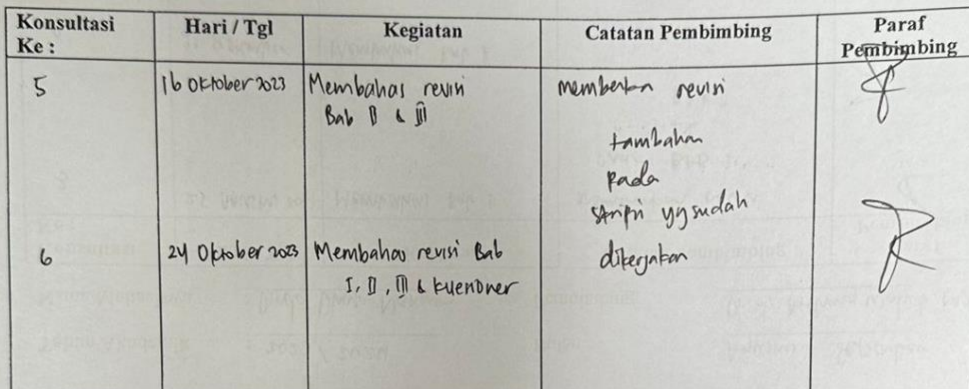 Konsultasi Ke : Hari / Tgl Kegiatan Catatan Pembimbing Paraf Pembimbing
5 16 Oktober 2023 Membahas revisi memberikan revisi
Bab II & III
tambahan
pada
skripsi yg sudah
6 24 Oktober 2023 Membahas revisi Bab dikerjakan
I, II, III & kuesioner